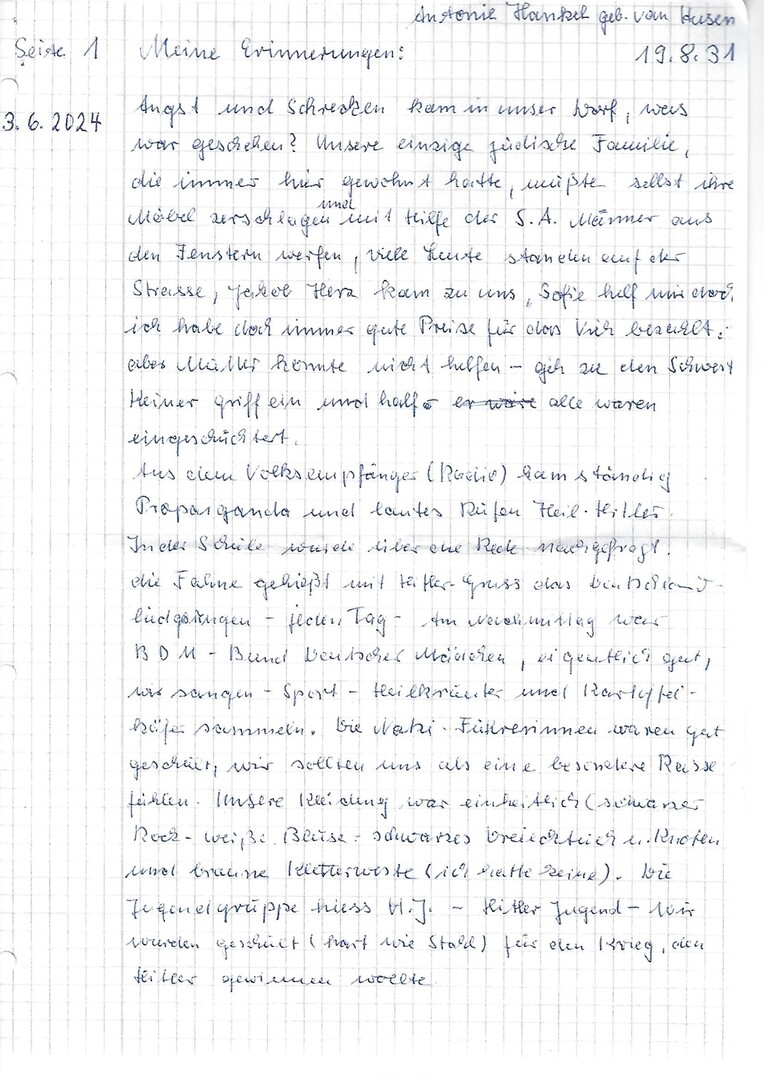 Antonie Hankel geb. van Husen
Seite 1 Meine Erinnerungen: 19.8.31
3.6.2024 Angst und Schrecken kam in unser Dorf, was
war geschehen? Unsere einzige jüdische Familie,
die immer hier gewohnt hatte, mußte selbst ihre
Möbel zerschlagen und mit Hilfe der S.A. Männer aus
den Fenstern werfen, viele Leute standen auf der
Strasse, Jakob Herz kam zu uns, Sofie helf mir doch,
ich habe doch immer gute Preise für das Vieh bezahlt.
aber Mutter konnte nicht helfen - geh zu den
Heiner griff ein und half er wäre alle waren
eingeschüchtert.
Aus dem Volksempfänger (Radio) kam ständig
Propaganda und lautes Rufen Heil-Hitler.
In der Schule wurde über die Rede nachgefragt.
die Fahne gehießt mit Hitler-Gruss das Deutschland-
lied gesungen - jeden Tag - Am Nachmittag war
BDM - Bund Deutscher Mädchen, eigentlich gut,
wir sangen - Sport - Heilkräuter und Kartoffel-
käfer sammeln. Die Nazi-Führerinnen waren gut
geschult, wir sollten uns als eine besondere Rasse
fühlen. Unsere Kleidung war einheitlich (schwarzer
Rock - weiße Bluse - schwarzes Dreiecktuch u. Knoten
und braune Kletterweste (ich hatte keine). Die
Jugendgruppe hiess H.J. - Hitler Jugend - Wir
wurden geschult (hart wie Stahl) für den Krieg, den
Hitler gewinnen wollte